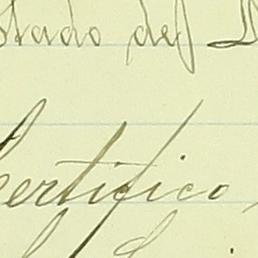 stado del
Certifico,